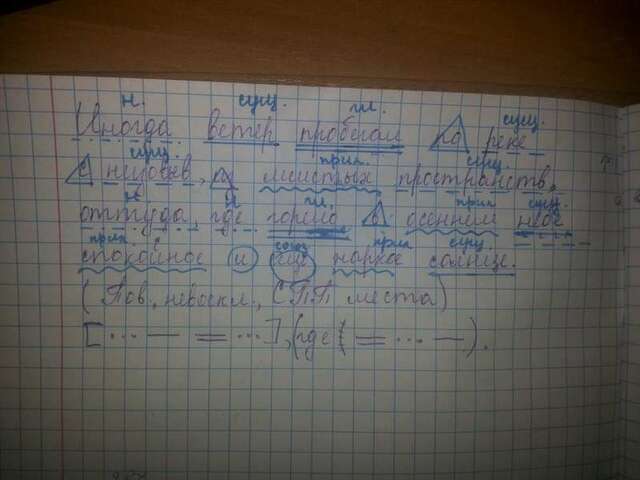 н. сущ. гл. сущ.
Иногда ветер пробегал по реке
сущ. прил. сущ.
с низовьев, из мшистых пространств,
н н гл. прил сущ.
оттуда, где горело в осеннем небе
прил. союз прил сущ.
спокойное и ещё жаркое солнце.
(Пов., невоскл., СПП места)
[... — = ...], (где = ... —).